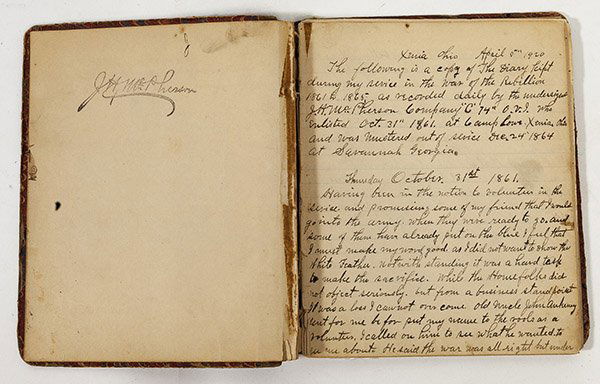 JH McPherson
Xenia Ohio April 5th 1920
The following is a copy of The Diary Kept
during my service in the War of the Rebellion
1861 to 1865 as recorded daily by the undersigned
J.H. McPherson Company "C" 74th O.V.I. who
Enlisted Oct. 31st 1861. at Camp Lowe, Xenia, Ohio
and was Mustered out of service Dec. 24 1864
at Savannah Georgia.
Thursday October 31st 1861.
Having been in the notion to volunteer in the
service and promising some of my friend that I would
go into the army. when they were ready to go. and
some of them have already put on the blue I feel that
I must make my word good as I did not want to show the
White Feather. notwithstanding it was a hard task
to make the sacrifice. While the homefolks did
not object seriously. but from a business standpoint
It was a loss I cannot over come old Uncle John
sent for me before put my name to the rools as a
volunteer. I called on him to see what he wanted to
see me about. He said the war was all right but under